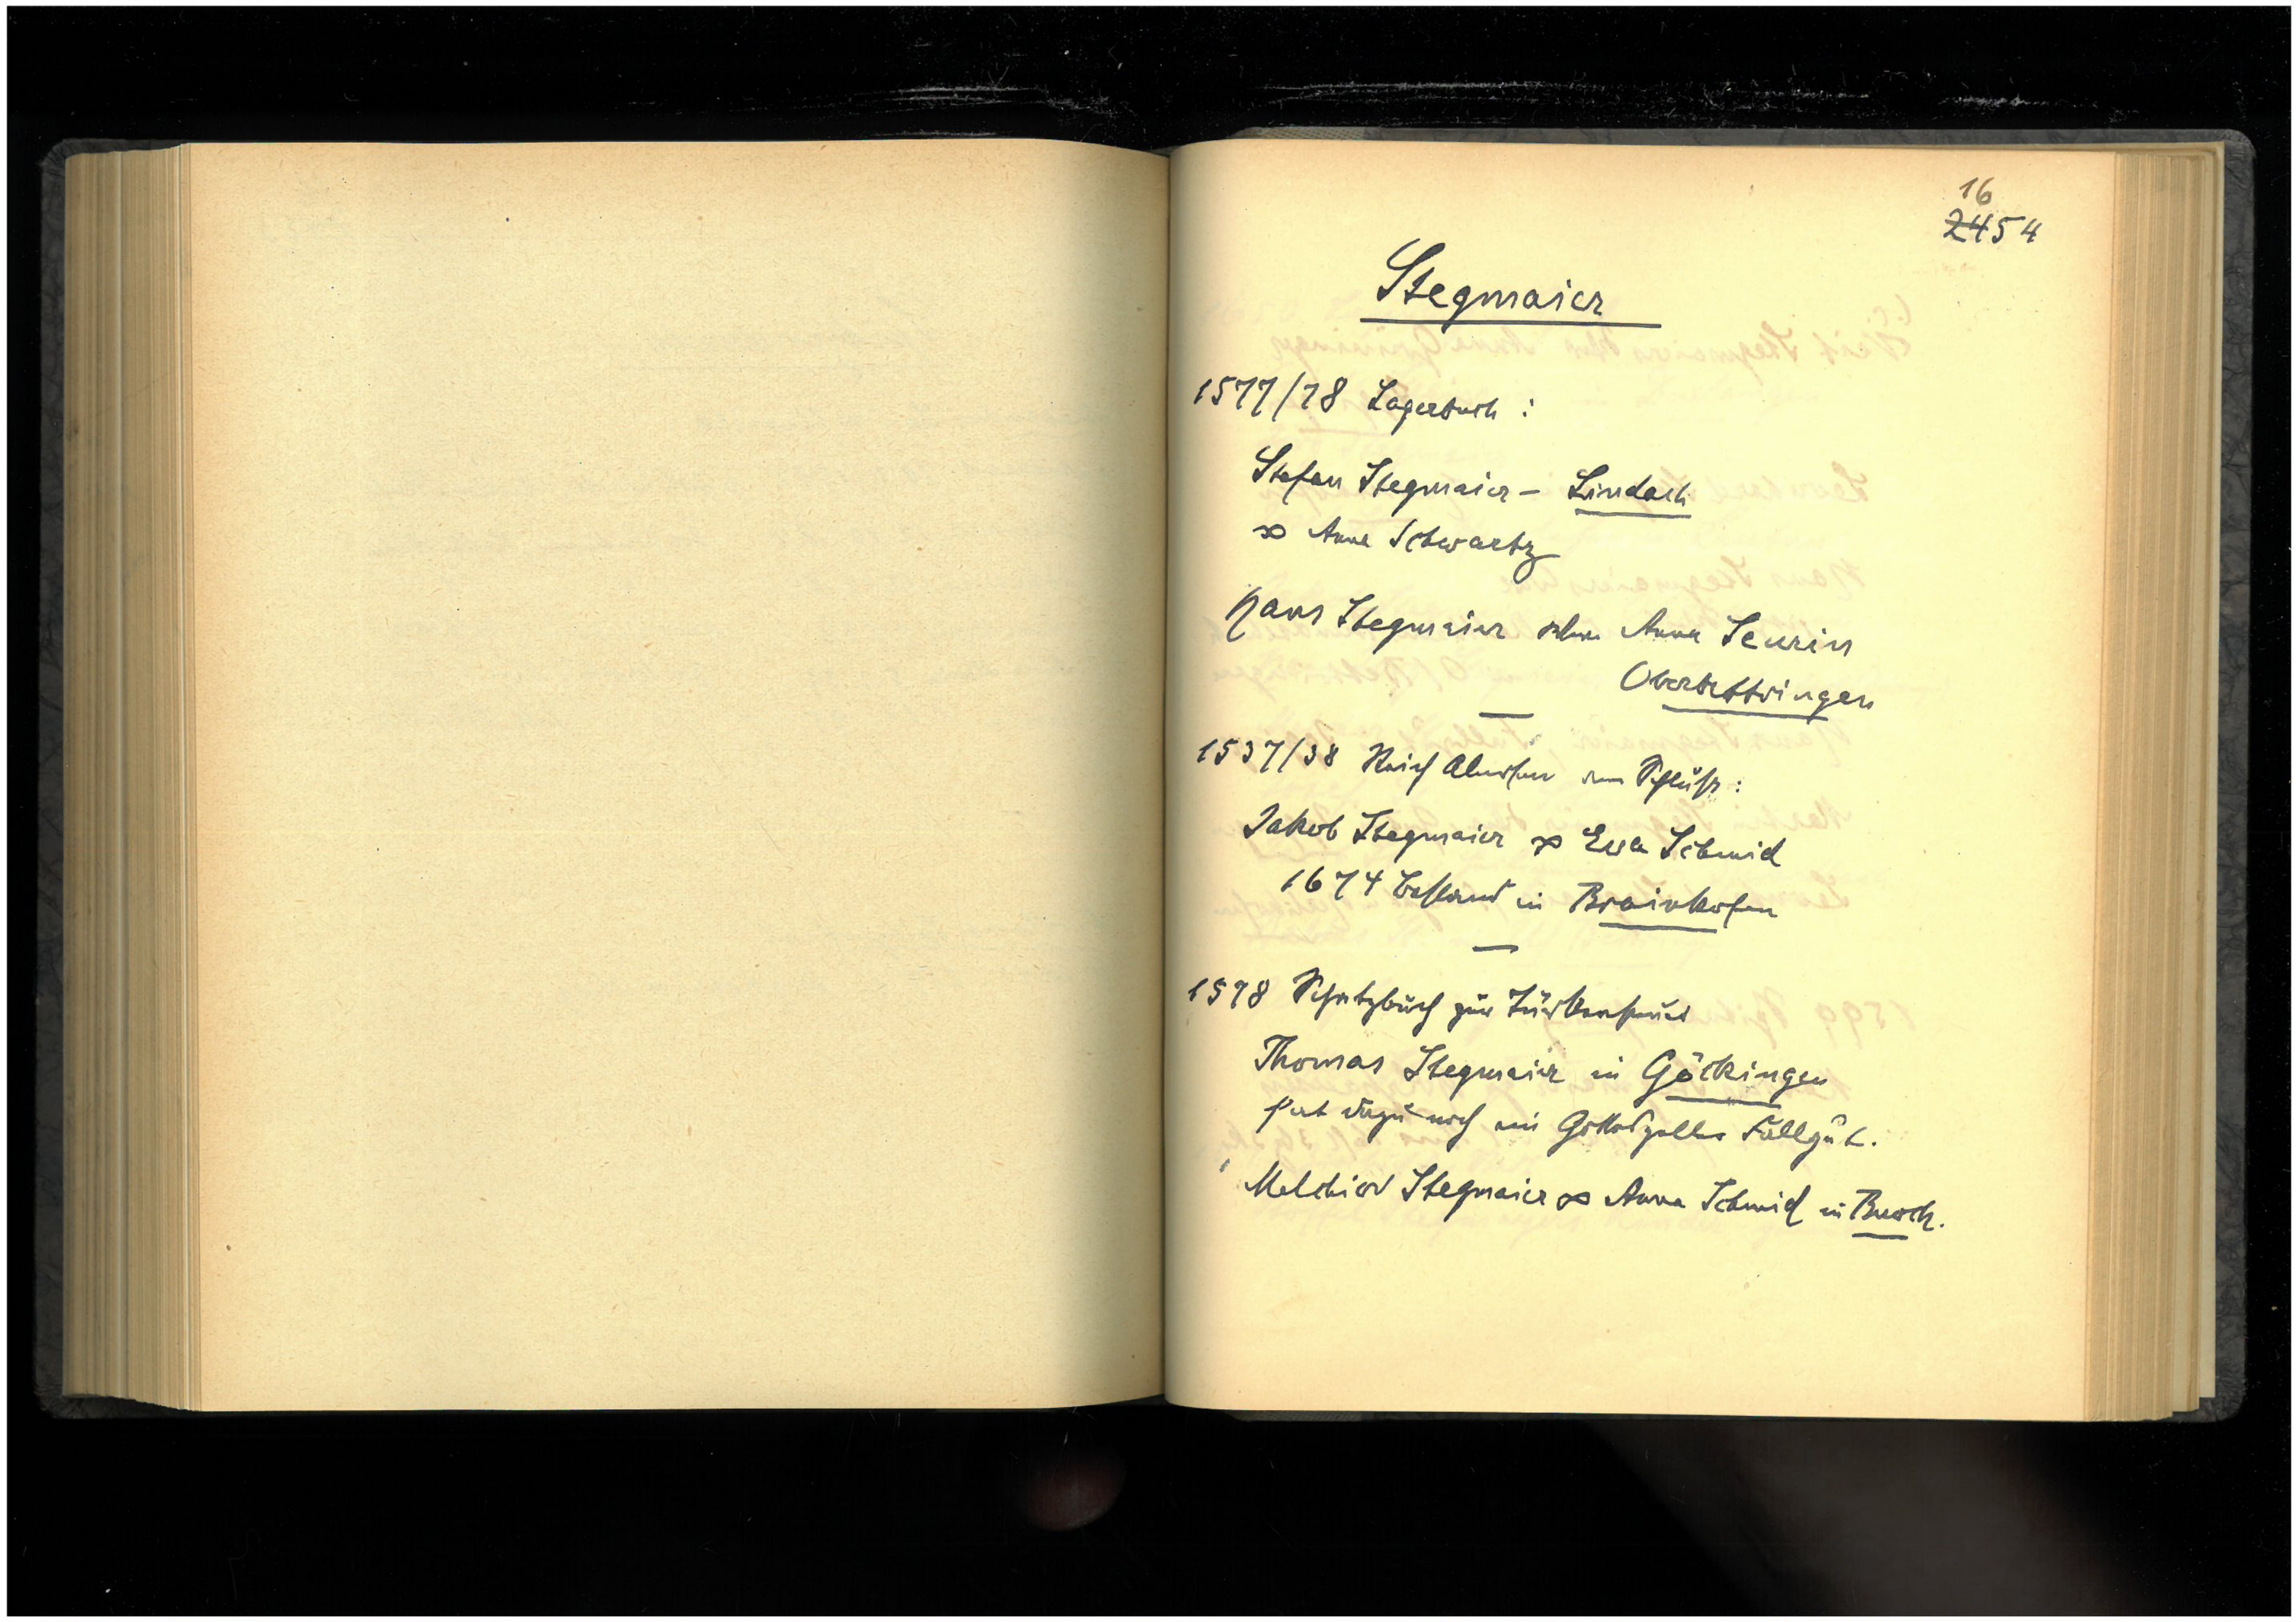 16
2454
Stegmaier
1577/78 Lagerbuch :
Stefan Stegmaier – Lindach
∞ Anna Schwartz
Hans Stegmaier Anna Seurin
Oberbettringen
1537/38 Reich Almosen am Schluß :
Jakob Stegmaier ∞ Eva Schmid
1674 Bestand in Brainkofen
1578 Schatzbuch zur Türkensteuer
Thomas Stegmaier in Göckingen
hat dazu noch ein Gotteszeller Fallgut.
Melchior Stegmaier ∞ Anna Schmid in Buoch.